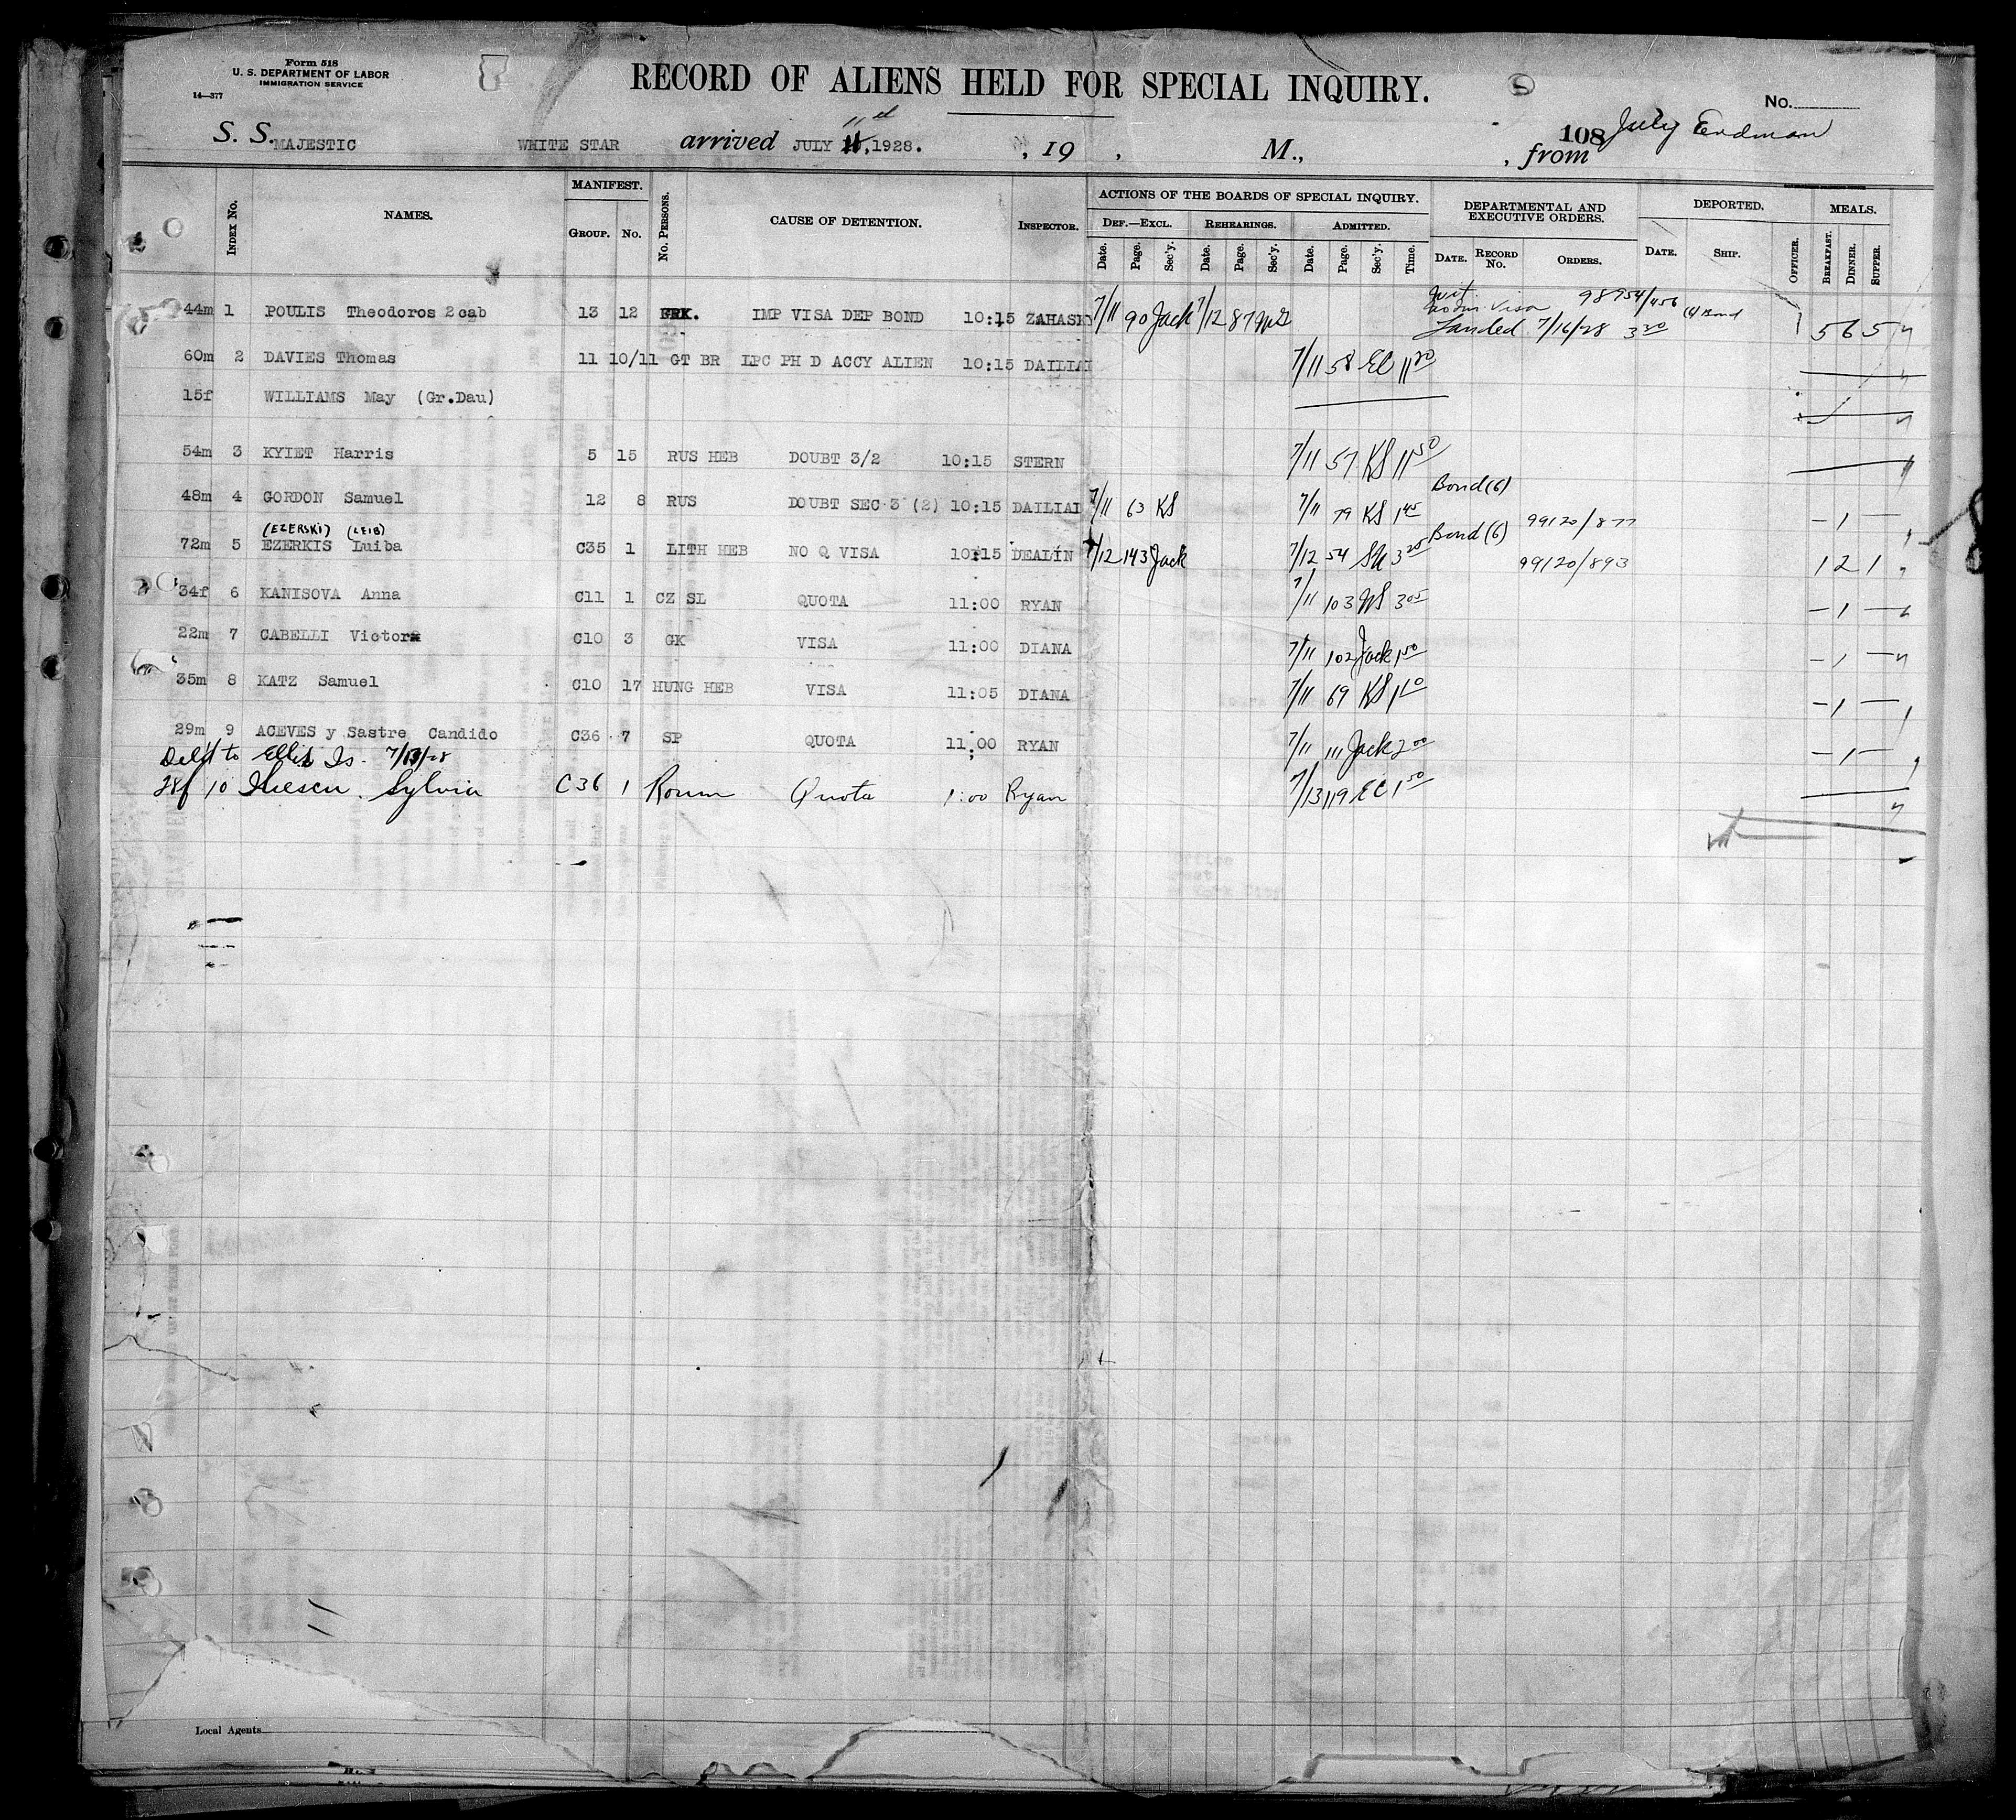 Form 518
U. S. DEPARTMENT OF LABOR
IMMIGRATION SERVICE
14—377
RECORD OF ALIENS HELD FOR SPECIAL INQUIRY.
No.
S. S. MAJESTIC WHITE STAR arrived JULY 11, 1928. , 19 , M., 108 , from
MANIFEST. ACTIONS OF THE BOARDS OF SPECIAL INQUIRY. DEPARTMENTAL AND EXECUTIVE ORDERS. DEPORTED. MEALS.
INDEX No. NAMES. GROUP. No. No. PERSONS. CAUSE OF DETENTION. INSPECTOR. DEF.—EXCL. REHEARINGS. ADMITTED.
Date. Page. Sec'y. Date. Page. Sec'y. Date. Page. Sec'y. Time. DATE. RECORD No. ORDERS. DATE. SHIP. OFFICER. BREAKFAST. DINNER. SUPPER.
98954/456 (4) Bond
44m 1 POULIS Theodoros 2 cab 13 12 GRK. IMP VISA DEP BOND 10:15 ZAHASKY 7/11 90 Jack 7/12 87 Landed 7/16/28 3 30 5 6 5
60m 2 DAVIES Thomas 11 10/11 GT BR LPC PH D ACCY ALIEN 10:15 DAILIAI 7/11 58 EC 11 20
15f WILLIAMS May (Gr.Dau)
54m 3 KYIET Harris 5 15 RUS HEB DOUBT 3/2 10:15 STERN 7/11 57 KS 11 50
Bond (6)
48m 4 GORDON Samuel 12 8 RUS DOUBT SEC 3 (2) 10:15 DAILIAI 7/11 63 KS 7/11 79 KS 1 45 99120/877 — 1 —
(EZERSKI) (LEIB) Bond (6)
72m 5 EZERKIS Luiba C35 1 LITH HEB NO Q VISA 10:15 DEALIN 7/12 143 Jack 7/12 54 3 25 99120/893 1 2 1
34f 6 KANISOVA Anna C11 1 CZ SL QUOTA 11:00 RYAN 7/11 103 3 05 — 1 —
22m 7 CABELLI Victor C10 3 GK VISA 11:00 DIANA 7/11 102 Jack 1 50 — 1 —
35m 8 KATZ Samuel C10 17 HUNG HEB VISA 11:05 DIANA 7/11 69 KS 1 10 — 1 —
29m 9 ACEVES y Sastre Candido C36 7 SP QUOTA 11:00 RYAN 7/11 111 Jack 2 00 — 1 —
Deld to Ellis Is. 7/13/28
28f 10 Iliescu Sylvia C36 1 Roum Quota 1:00 Ryan 7/13 119 EC 1 50
Local Agents